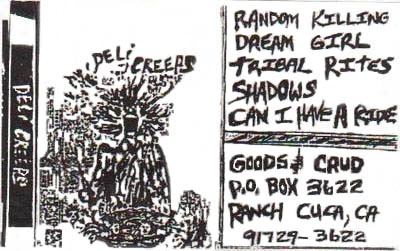 DELI CREEPS
DELI CREEPS
RANDOM KILLING
DREAM GIRL
TRIBAL RITES
SHADOWS
CAN I HAVE A RIDE
GOODS & CRUD
P.O. BOX 3622
RANCH CUCA, CA
91729-3622